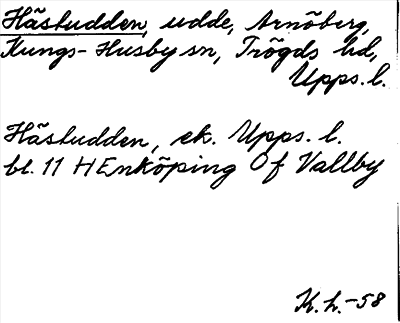 Hästudden, udde, Arnöberg,
Kungs-Husby sn, Trögds hd,
Upps. l.
Hästudden, ek. Upps. l.
bl. 11 H Enköping Of Vallby
K. h. -58